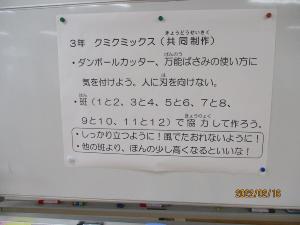 ３年　クミクミックス（共同制作）
・ダンボールカッター、万能ばさみの使い方に
気を付けよう。人に刃を向けない。
・班（１と２、３と４、５と６、７と８、
９と１０、１１と１２）で協力して作ろう。
・しっかり立つように！風でたおれないように！
・他の班より、ほんの少し高くなるといいな！
2022/02/16